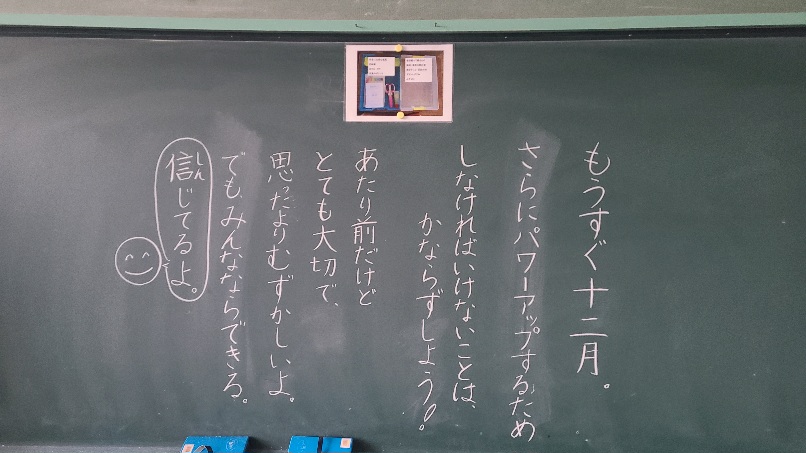 もうすぐ十二月。
さらにパワーアップするため
しなければいけないことは、
かならずしよう!
あたり前だけど
とても大切で、
思ったよりむずかしいよ。
でも、みんなならできる。
信じてるよ。
しん